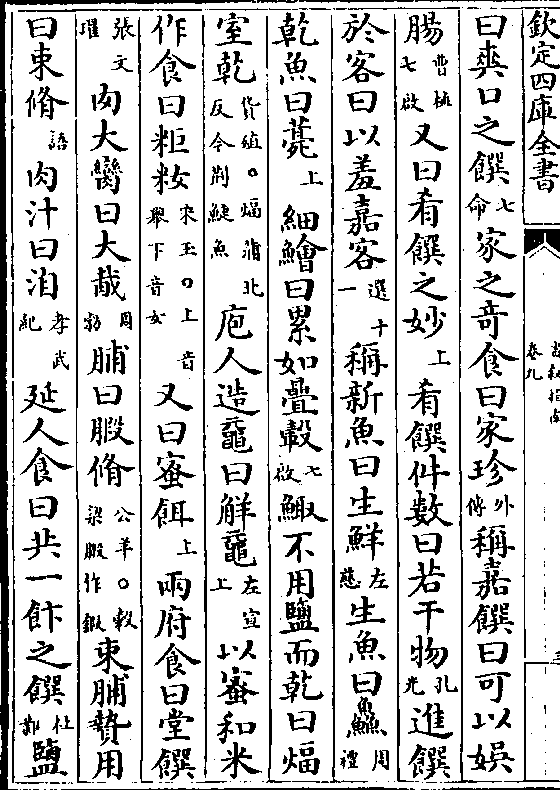 欽定四庫全書
卷九
曰爽口之饌七命家之竒食曰家珍外傳稱嘉饌曰可以娯
腸曹植七啟又曰肴饌之妙上肴饌件數曰若干物孔光進饌
於客曰以羞嘉客選十一稱新魚曰生鮮左慈生魚曰鱻周禮
乾魚曰薧上細鱠曰累如疊縠七啟鯫不用鹽而乾曰煏
室乾貨殖○煏蒲北反今荆鯫魚庖人造黿曰解黿左宣上以蜜和米
作食曰粔籹宋玉○上音舉下音女又曰蜜餌上兩府食曰堂饌
張文瓘肉大臠曰大胾周勃脯曰腶脩公羊○穀梁腶作鍛束脯贄用
曰束脩語肉汁曰洎孝武紀延人食曰共一飰之饌杜鄴鹽